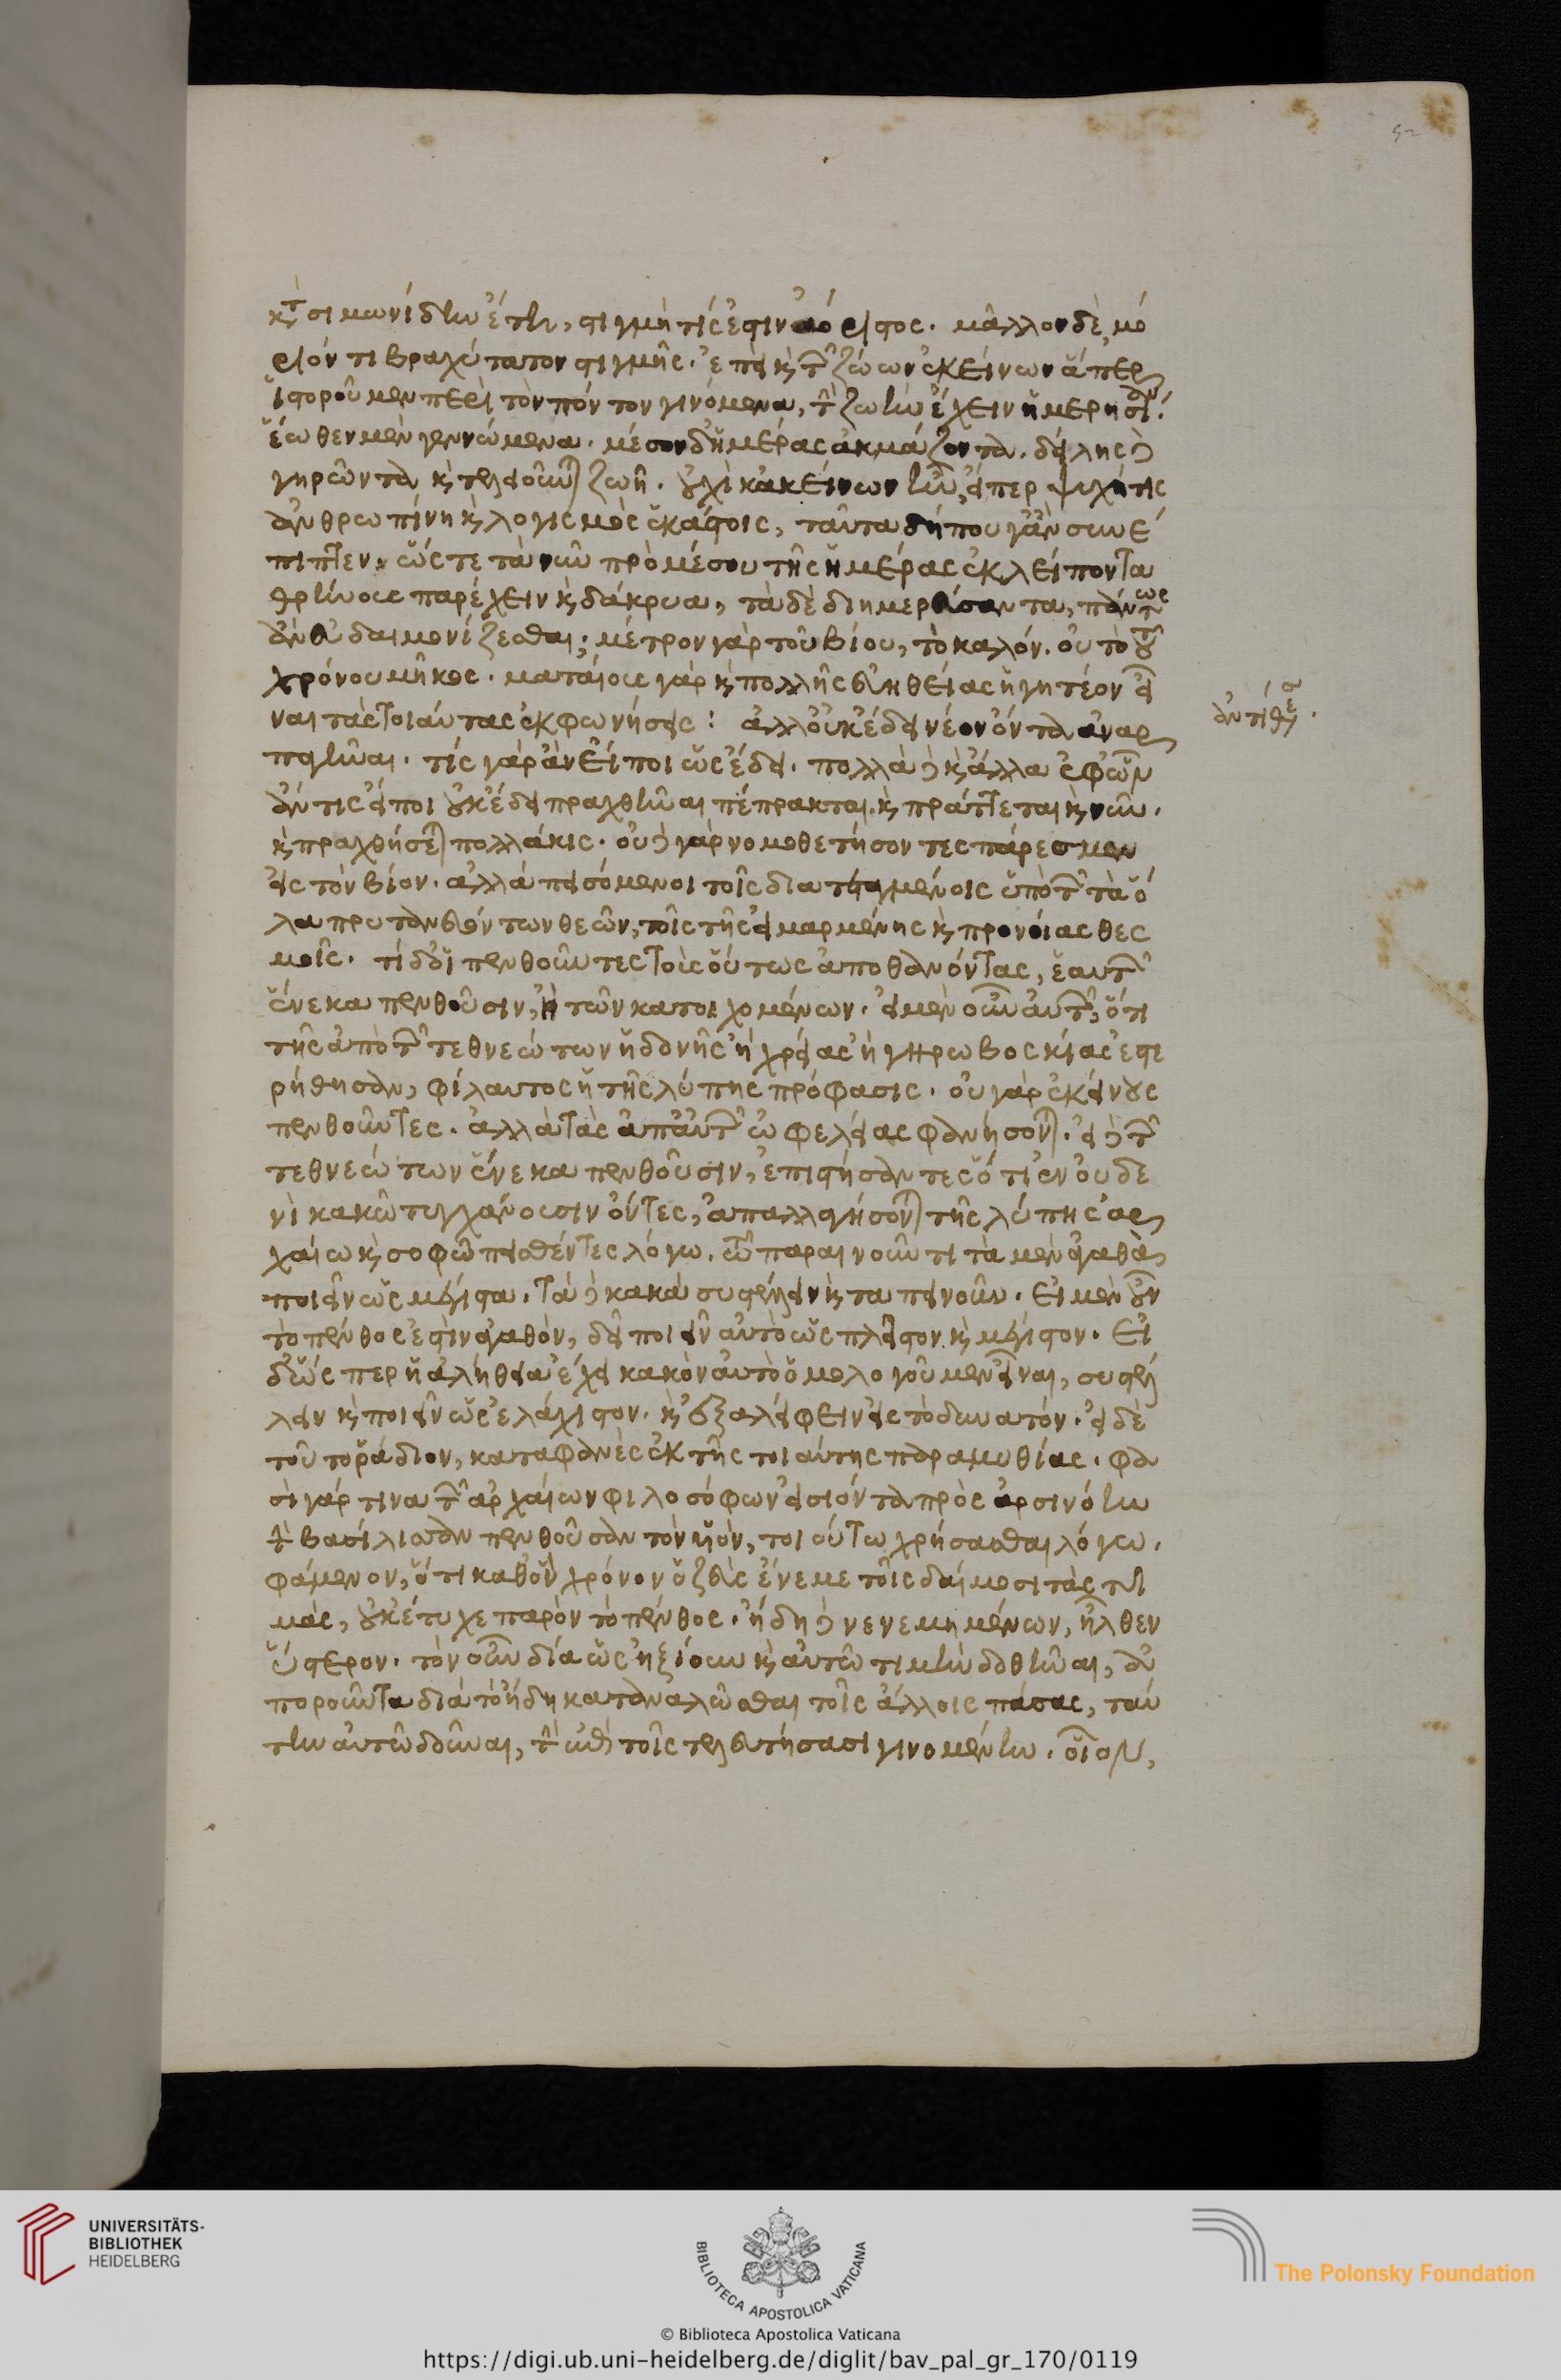 κατὰ σιμωνίδην ἔτη, στιγμὴ τίς ἐστιν ἀόριστος. μᾶλλον δὲ, μό
ριόν τι βραχύτατον στιγμῆς. ἐπεὶ καὶ τῶν ζώων ἐκείνων ἅπερ
ἱστοροῦμεν περὶ τὸν πόντον γινόμενα, τὴν ζωὴν ἔχειν ἡμερησίαν.
ἕωθεν μὲν γεννώμενα. μέσον δ' ἡμέρας ἀκμάζοντα. δείλης δὲ
γηρῶντα καὶ τελειοῦνται ζωῆ. οὐχὶ κἀκείνων ἦν, εἴπερ ψυχή τις
ἀνθρωπίνη καὶ λογισμὸς ἑκάστοις, ταῦτα δήπου γ' ἂν συνέ
πιπτεν. ὥστε τὰ νῦν πρὸ μέσου τῆς ἡμέρας ἐκλείποντα
θρήνους παρέχειν καὶ δάκρυα, τὰ δὲ διημερεύσαντα, πάντως
ἂν εὐδαιμονίζεσθαι; μέτρον γὰρ τοῦ βίου, τὸ καλόν. οὐ τὸ τοῦ
χρόνου μῆκος. ματαίους γὰρ καὶ πολλῆς εὐηθείας ἡγητέον εἶ
ναι τὰς τοιαύτας ἐκφωνήσεις: ἀλλ' οὐκ ἔδει νέον ὄντα ἀναρ
παγῆναι. τίς γὰρ ἂν εἴποι ὡς ἔδει. πολλὰ δὲ καὶ ἄλλα ἐφ' ὧν
ἄν τις εἴποι οὐκ ἔδει πραχθῆναι πέπρακται. καὶ πράττεται καὶ νῦν.
καὶ πραχθήσεται πολλάκις. οὐ δὲ γὰρ νομοθετήσοντες πάρεσμεν
εἰς τὸν βίον. ἀλλὰ πεισόμενοι τοῖς διατεταγμένοις ὑπὸ τῶν τὰ ὅ
λα πρυτανευόντων θεῶν, τοῖς τῆς εἱμαρμένης καὶ προνοίας θεσ
μοῖς. τί δ' οἱ πενθοῦντες τοὺς οὕτως ἀποθανόντας, ἑαυτῶν
ἕνεκα πενθοῦσιν, ἢ τῶν κατοιχομένων. εἰ μὲν οὖν αὑτῶν, ὅτι
τῆς ἀπὸ τῶν τεθνεώτων ἡδονῆς ἢ χρείας ἢ γηρωβοσκίας ἐστε
ρήθησαν, φίλαυτος ἡ τῆς λύπης πρόφασις. οὐ γὰρ ἐκείνους
πενθοῦντες. ἀλλὰ τὰς ἀπ' αὐτῶν ὠφελείας φανήσονται. εἰ δὲ τῶν
τεθνεώτων ἕνεκα πενθοῦσιν, ἐπιστήσαντες ὅτι ἐν οὐδε
νὶ κακῶ τυγχάνουσιν ὄντες, ἀπαλλαγήσονται τῆς λύπης ἀρ
χαίω καὶ σοφῶ πεισθέντες λόγω. τῶ παραινοῦντι τὰ μὲν ἀγαθὰ
ποιεῖν ὡς μέγιστα. τὰ δὲ κακὰ συστέλλειν καὶ ταπεινοῦν. εἰ μὲν οὖν
τὸ πένθος ἐστὶν ἀγαθὸν, δεῖ ποιεῖν αὐτὸ ὡς πλεῖστον καὶ μέγιστον. εἰ
δ' ὥσπερ ἡ ἀλήθεια ἔχει κακὸν αὐτὸ ὁμολογοῦμεν εἶναι, συστέλ
λειν καὶ ποιεῖν ὡς ἐλάχιστον. καὶ ἐξαλείφειν εἰς τὸ δυνατόν. εἰ δὲ
τοῦτο ῥάδιον, καταφανὲς ἐκ τῆς τοιαύτης παραμυθίας. φα
σὶ γάρ τινα τῶν ἀρχαίων φιλοσόφων εἰσιόντα πρὸς ἀρσινόην
τὴν βασίλισσαν πενθοῦσαν τὸν υἱὸν, τοιούτω χρήσασθαι λόγω.
φάμενον, ὅτι καθ' ὃν χρόνον ὁ ζεὺς ἔνεμε τοῖς δαίμοσι τὰς τι
μὰς, οὐκ ἔτυχε παρὸν τὸ πένθος. ἤδη δὲ νενεμημένων, ἦλθεν
ὕστερον. τὸν οὖν δία ὡς ἠξίουν καὶ αὐτῶ τιμὴν δοθῆναι, ἀ
ποροῦντα διὰ τὸ ἤδη καταναλῶσθαι τοῖς ἄλλοις πάσας, ταύ
την αὐτῶ δοῦναι, τὴν ἐπὶ τοῖς τελευτήσασι γινομένην. οἷον,
ἀντίθεσ.
52
UNIVERSITÄTS-
BIBLIOTHEK
HEIDELBERG
BIBLIOTECA APOSTOLICA VATICANA
The Polonsky Foundation
© Biblioteca Apostolica Vaticana
https://digi.ub.uni-heidelberg.de/diglit/bav_pal_gr_170/0119